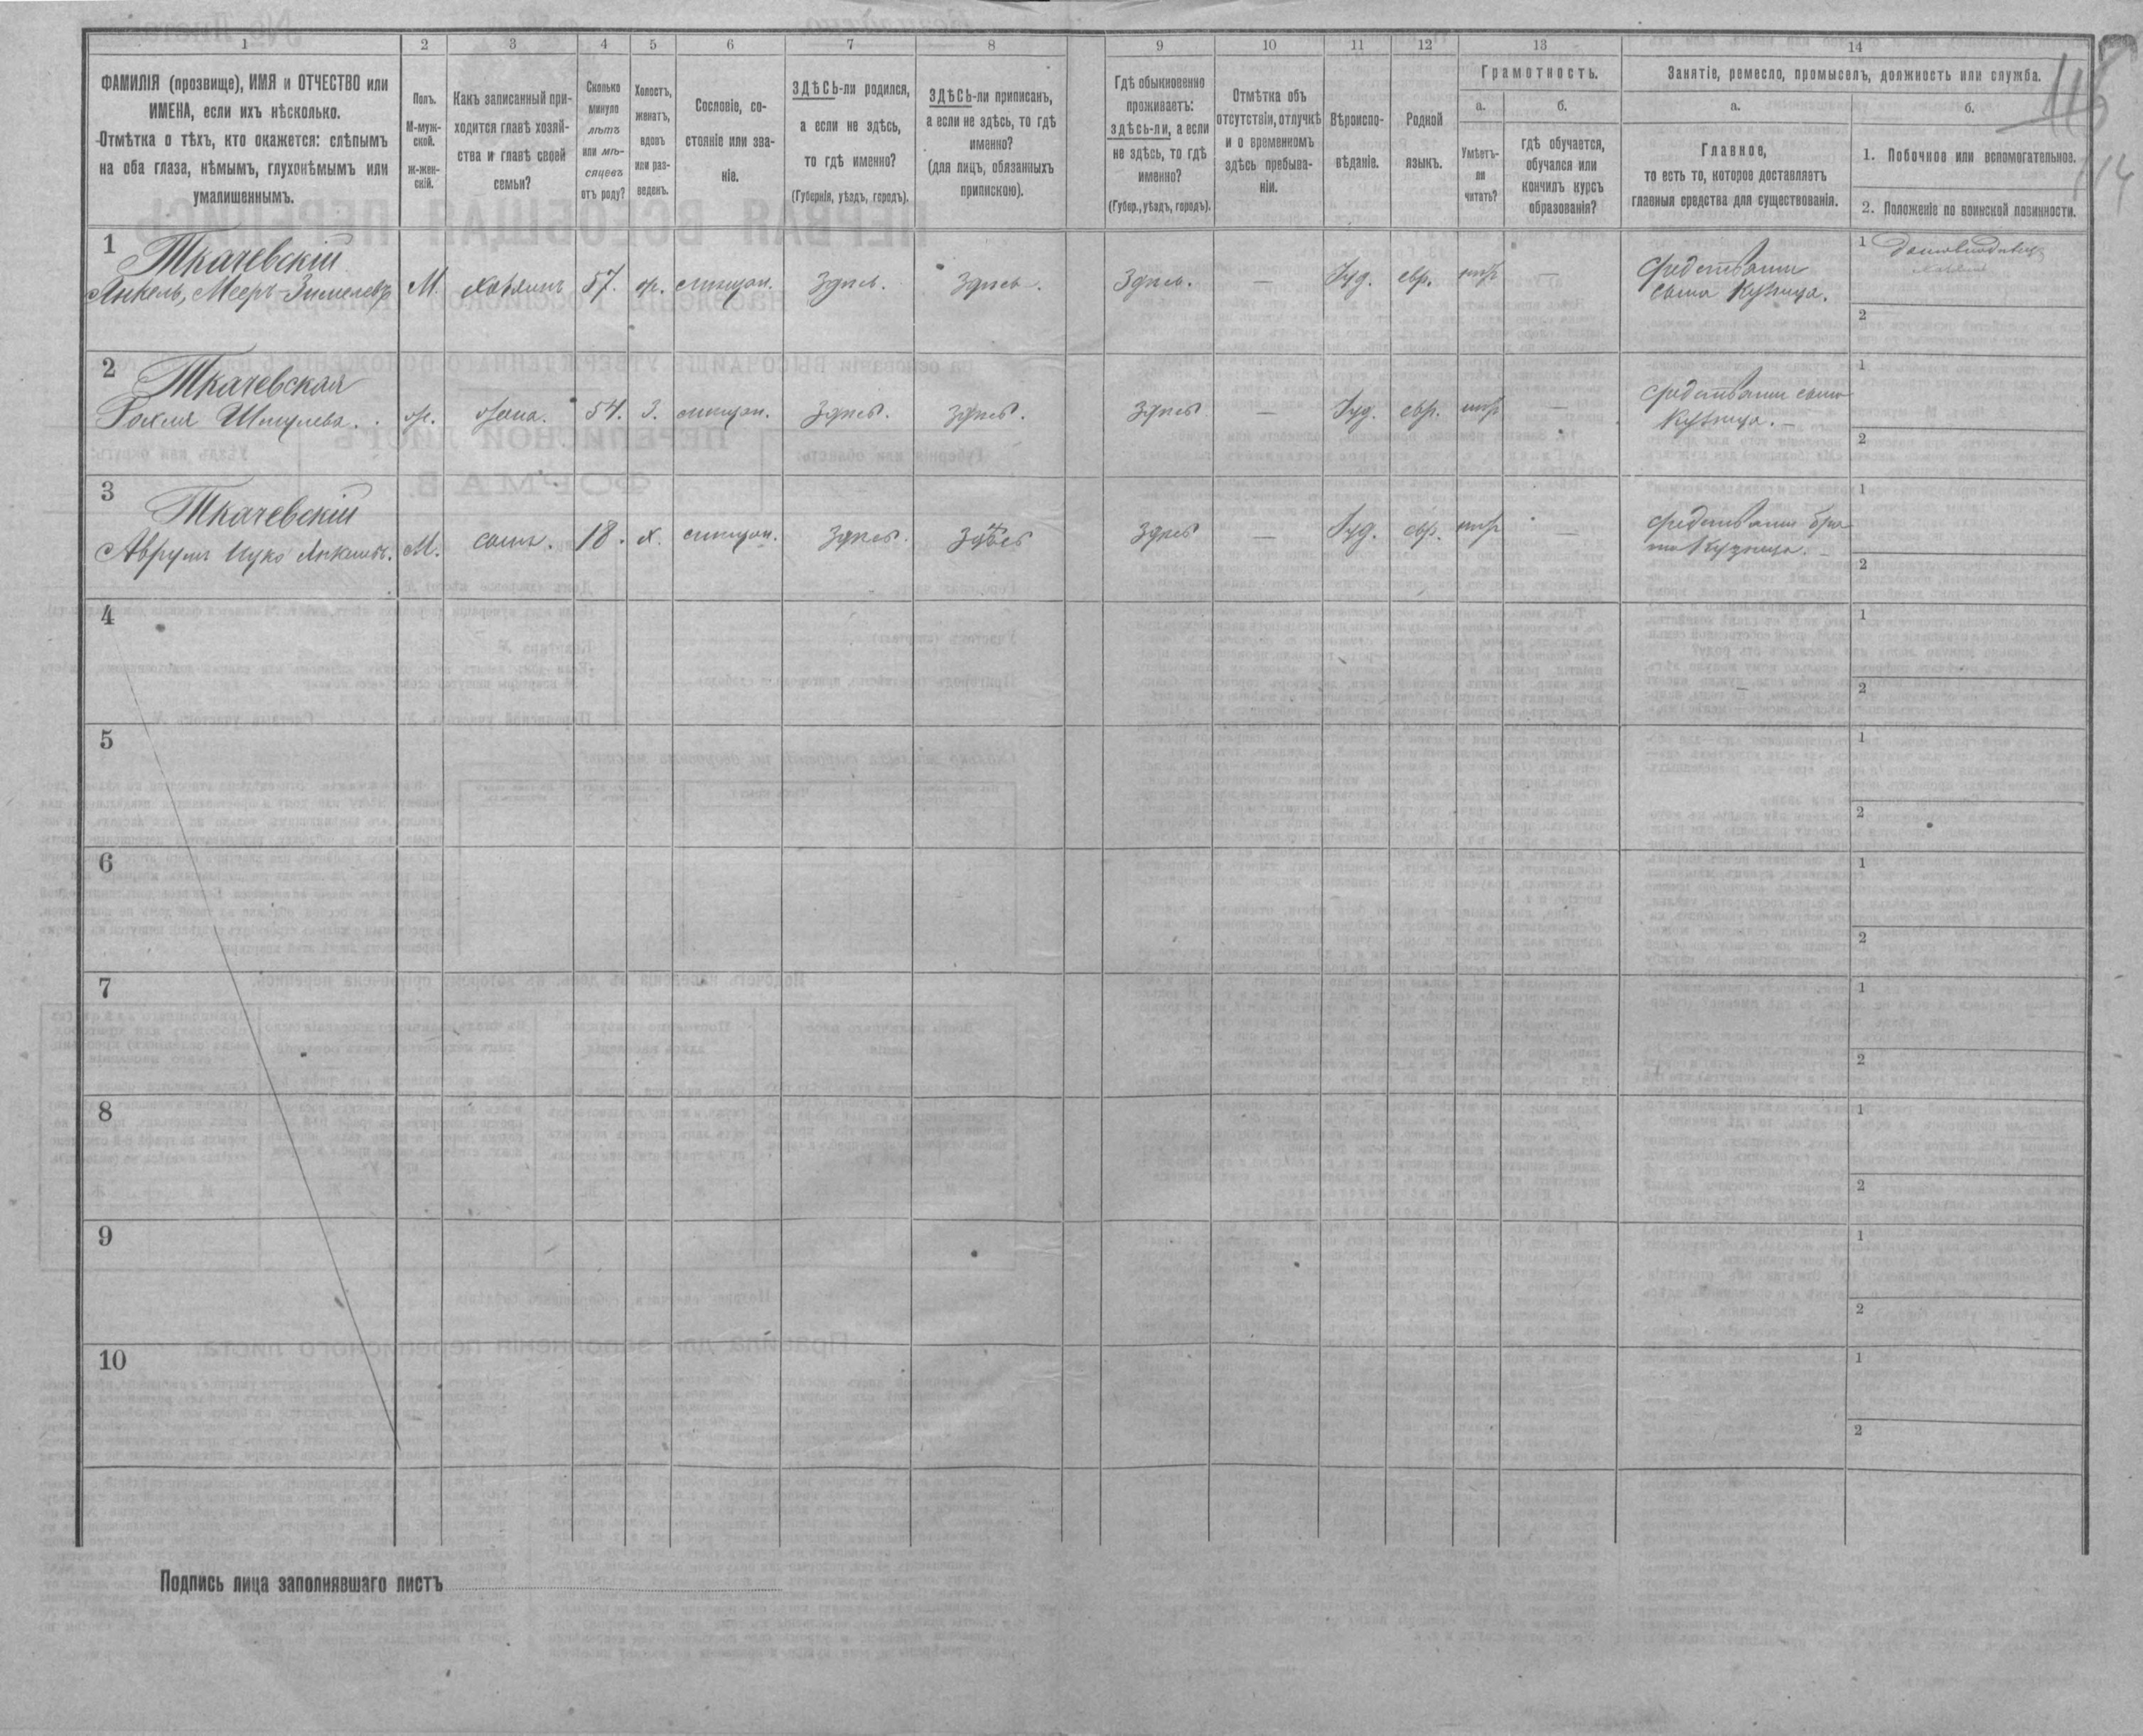 1
2
3
4
5
6
7
8
9
10
11
12
13
14
ФАМИЛІЯ (прозвище), ИМЯ и ОТЧЕСТВО или
ИМЕНА, если ихъ нѣсколько.
Отмѣтка о тѣхъ, кто окажется: слѣпымъ
на оба глаза, нѣмымъ, глухонѣмымъ или
умалишеннымъ.
Полъ.
М-муж-
ской.
ж-жен-
скій.
Какъ записанный при-
ходится главѣ хозяй-
ства и главѣ своей
семьи?
Сколько
минуло
лѣтъ
или мѣ-
сяцевъ
отъ роду?
Холостъ,
женатъ,
вдовъ
или раз-
веденъ.
Сословіе, со-
стояніе или зва-
ніе.
ЗДѢСЬ-ли родился,
а если не здѣсь,
то гдѣ именно?
(Губернія, уѣздъ, городъ).
ЗДѢСЬ-ли приписанъ,
а если не здѣсь, то гдѣ
именно?
(для лицъ, обязанныхъ
припискою).
Гдѣ обыкновенно
проживаетъ:
здѣсь-ли, а если
не здѣсь, то гдѣ
именно?
(Губер., уѣздъ, городъ).
Отмѣтка объ
отсутствіи, отлучкѣ
и о временномъ
здѣсь пребыва-
ніи.
Вѣроиспо-
вѣданіе.
Родной
языкъ.
Грамотность.
а.
б.
Умѣетъ-
ли
читать?
гдѣ обучается,
обучался или
кончилъ курсъ
образованія?
Занятіе, ремесло, промыселъ, должность или служба.
а.
б.
Главное,
то есть то, которое доставляетъ
главныя средства для существованія.
1. Побочное или вспомогательное.
2. Положеніе по воинской повинности.
114
1
Ткачевскій
Янкель, Мееръ-Зимелевъ
М.
хозяинъ
57.
ж.
мищан.
Здпсь.
Здпсь.
Здпсь.
—
Іуд.
евр.
нтъ
—
Средствами
сына Кузнеца.
1
2
2
Ткачевская
Шмулева.
ж.
жена.
54.
З.
мищан.
Здпсь.
Здпсь.
Здпсь
—
Іуд.
евр.
нтъ
—
Средствами сына
Кузнеца. —
1
2
3
Ткачевскій
Аврумъ Ицко Янкелевъ.
М.
сынъ.
18.
х.
мищан.
Здпсь.
Здѣсь
Здпсь
—
Іуд.
евр.
нтъ
—
средствами бра
та Кузнеца. —
1
2
4
1
2
5
1
2
6
1
2
7
1
2
8
1
2
9
1
2
10
1
2
Подпись лица заполнявшаго листъ